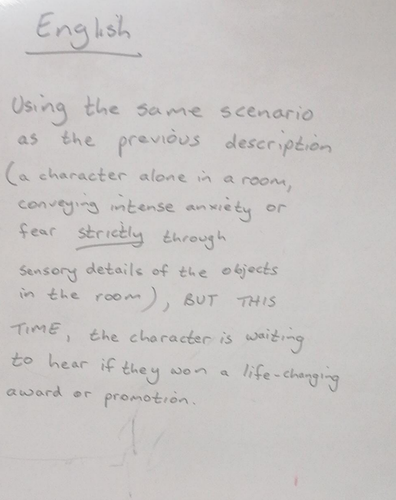 English
Using the same scenario
as the previous description
(a character alone in a room,
conveying intense anxiety or
fear strictly through
sensory details of the objects
in the room), BUT THIS
TIME, the character is waiting
to hear if they won a life-changing
award or promotion.